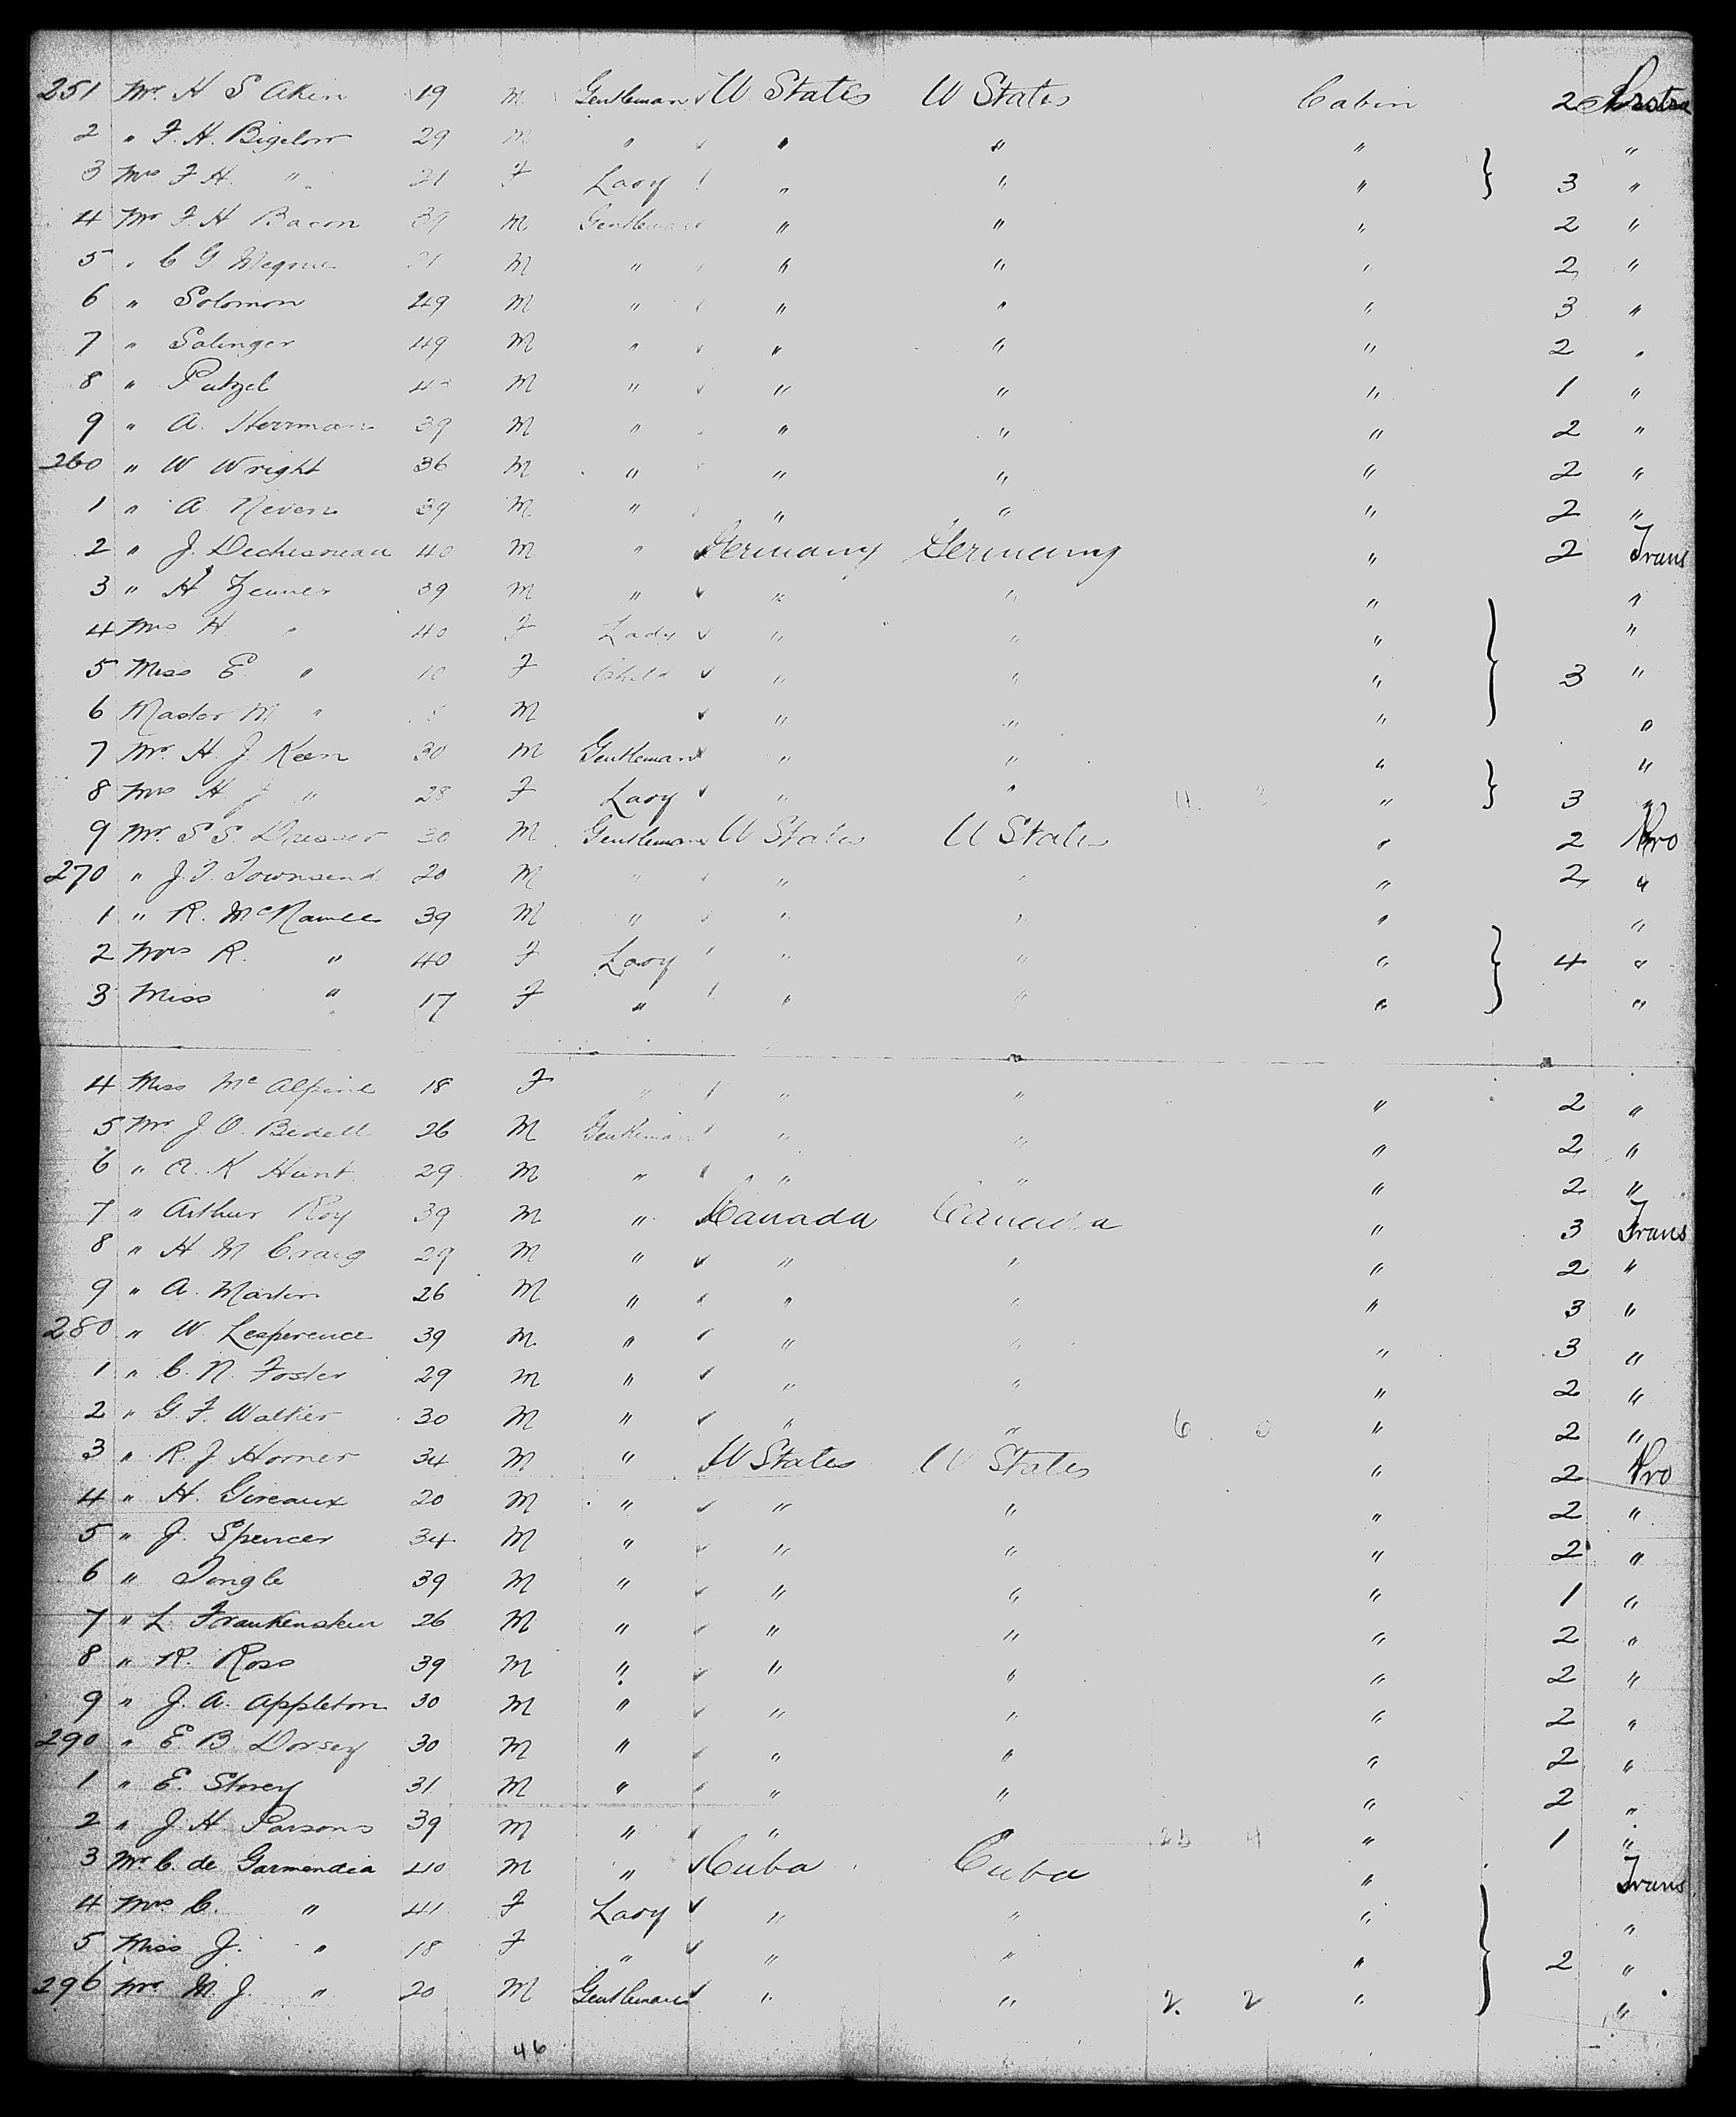 251 Mr. H S. Akin 19 M Gentleman U States U States Cabin 2
2 " F. H. Bigelow 29 M " " " " "
3 Mrs F H. " 21 F Lady " " " 3 "
4 Mr F. H Bacon 39 M Gentleman " " " 2 "
5 " C G 21 M " " " " 2 "
6 " Solomon 49 M " " " " 3 "
7 " Salinger 49 M " " " " 2 "
8 " Putzel M " " " " 1 "
9 " A. Herrman 39 M " " " " 2 "
260 " W Wright 36 M " " " " 2 "
1 " A. Neven 39 M " " " " 2 "
2 " J. 40 M " Germany Germany " 2 Trans
3 " H 39 M " " " " "
4 Mrs H " 40 F Lady " " " "
5 Miss E. " 10 F Child " " " 3 "
6 Master M " M " " " "
7 Mr. H. J. Keen 30 M Gentleman " " " "
8 Mrs H J " 28 F Lady " " 11. 3 " 3 "
9 Mr. S S. Dresser 30 M Gentleman U States U States " 2 Pro
270 " J. T. Townsend 20 M " " " " 2 "
1 " R. McNamee 39 M " " " " "
2 Mrs R. " 40 F Lady " " " 4 "
3 Miss " 17 F " " " " "
4 Miss Mc Alpine 18 F " " " " 2 "
5 Mr. J. O. Bedell 26 M Gentleman " " " 2 "
6 " A. K Hunt 29 M " " " " 2 "
7 " Arthur Roy 39 M " Canada Canada " 3 Trans
8 " H. M Craig 29 M " " " " 2 "
9 " A. Martin 26 M " " " " 3 "
280 " W. Lesperence 39 M " " " " 3 "
1 " C. N. Foster 29 M " " " " 2 "
2 " G. F. Walker 30 M " " " 6 0 " 2 "
3 " R. J. Horner 34 M " U States U States " 2 Pro
4 " H. Gireaux 20 M " " " " 2 "
5 " J. Spencer 34 M " " " " 2 "
6 " Tingle 39 M " " " " 1 "
7 " L. Frankenstein 26 M " " " " 2 "
8 " R. Ross 39 M " " " " 2 "
9 " J. A. Appleton 30 M " " " " 2 "
290 " E. B. Dorsey 30 M " " " " 2 "
1 " E. Storey 31 M " " " " 2 "
2 " J. H. Parsons 39 M " " 4 " 1 "
3 Mr. C. de Garmendia 40 M " Cuba Cuba " Trans
4 Mrs C. " 41 F Lady " " " "
5 Miss J. " 18 F " " " " 2 "
296 Mr. M. J. " 20 M Gentleman " " 2. 2 " "
46